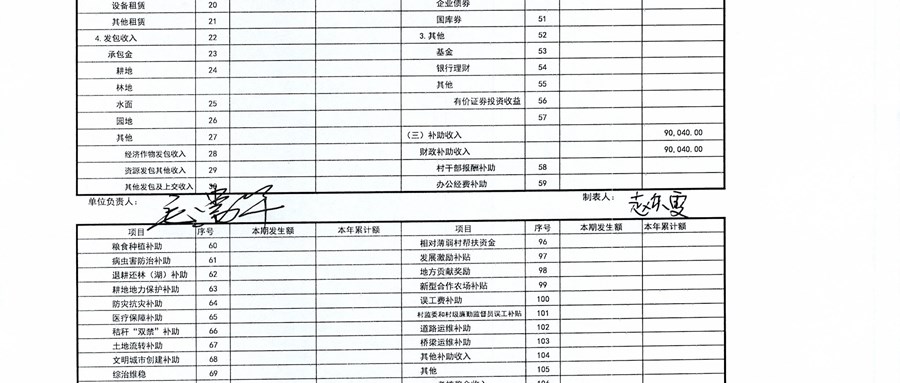 设备租赁 20 企业债券
其他租赁 21 国库券 51
4.发包收入 22 3.其他 52
承包金 23 基金 53
耕地 24 银行理财 54
林地 其他 55
水面 25 有价证券投资收益 56
园地 26 57
其他 27 (三)补助收入 90,040.00
经济作物发包收入 28 财政补助收入 90,040.00
资源发包其他收入 29 村干部报酬补助 58
其他发包及上交收入 30 办公经费补助 59
单位负责人: 制表人:
项目 序号 本期发生额 本年累计额 项目 序号 本期发生额 本年累计额
粮食种植补助 60 相对薄弱村帮扶资金 96
病虫害防治补助 61 发展激励补贴 97
退耕还林(湖)补助 62 地方贡献奖励 98
耕地地力保护补助 63 新型合作农场补贴 99
防灾抗灾补助 64 误工费补助 100
医疗保障补助 65 村监委和村级廉勤监督员误工补贴 101
秸秆“双禁”补助 66 道路运维补助 102
土地流转补助 67 桥梁运维补助 103
文明城市创建补助 68 其他补助收入 104
综治维稳 69 其他 105